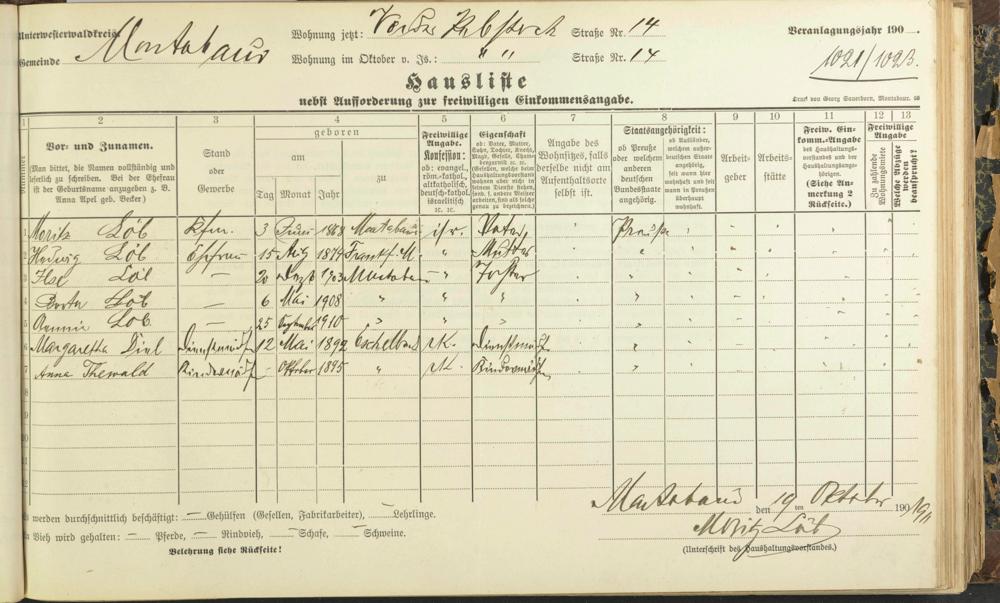 Unterwesterwaldkreis
Gemeinde Montabaur
Wohnung jetzt: Vorderer Rebstock Straße Nr. 14
Wohnung im Oktober v. Js.: " " Straße Nr. 14
Veranlagungsjahr 190
1021/1023.
Hausliste
nebst Aufforderung zur freiwilligen Einkommensangabe.
Druck von Georg Sauerborn, Montabaur.
1 2 3 4 5 6 7 8 9 10 11 12 13
Nummer
Vor- und Zunamen.
(Man bittet, die Namen vollständig und leserlich zu schreiben. Bei der Ehefrau ist der Geburtsname anzugeben z. B. Anna Apel geb. Becker)
Stand oder Gewerbe
geboren
am
Tag Monat Jahr
zu
Freiwillige Angabe.
Konfession:
ob: evangel., röm.-kathol. altkatholisch, deutsch-kathol. israelitisch rc. rc.
Eigenschaft
ob: Vater, Mutter, Sohn, Tochter, Knecht, Magd, Geselle,
Angabe des Wohnsitzes, falls derselbe nicht am Aufenthaltsorte selbst ist.
Staatsangehörigkeit:
ob Preuße oder welchem anderen deutschen Bundesstaate angehörig.
ob Ausländer, welchem außerdeutschen Staate angehörig, seit wann hier wohnhaft und seit wann in Preußen überhaupt wohnhaft.
Arbeitgeber
Arbeitsstätte
Freiw. Einkomm.-Angabe
des Haushaltungsvorstandes und der Haushaltungsangehörigen.
(Siehe Anmerkung 2 Rückseite.)
Freiwillige Angabe
Zu zahlende Wohnungsmiete
Welche Abzüge werden beansprucht?
1 Moritz Löb Kfm. 3 1868 Montabaur isr. Vater, Preuße
2 Hedwig Löb Ehefrau 15 Aug 1879 Frankf. M. " Mutter "
3 Ilse Löb — 20 Dezb 1903 Montabaur " Tochter "
4 Berta Löb 6 Mai 1908 " " "
5 Löb — 25 September 1910 " " "
6 Margaretha Diel Dienstmädch 12 Mai 1892 Eschelbach K. Dienstmädch "
7 Anna Thewald Kindermädch - Oktober 1895 " K. Kindermädchen "
8
9
10
11
12
Montabaur den 19 ten Oktober 190 1911
Es werden durchschnittlich beschäftigt: — Gehülfen (Gesellen, Fabrikarbeiter), — Lehrlinge.
An Vieh wird gehalten: — Pferde, — Rindvieh, — Schafe, — Schweine.
Moritz Löb
Belehrung siehe Rückseite!
(Unterschrift des Haushaltungsvorstandes.)